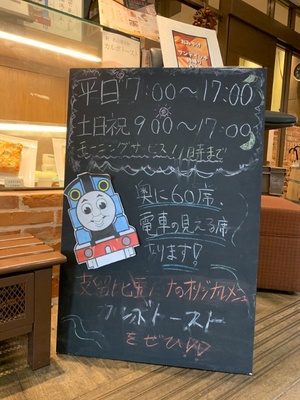 平日 7:00～17:00
土日祝 9:00～17:00
モーニングサービス 11時まで
奥に60席、
電車の見える席
あります!
オリジナルメニュー
トースト
をぜひ